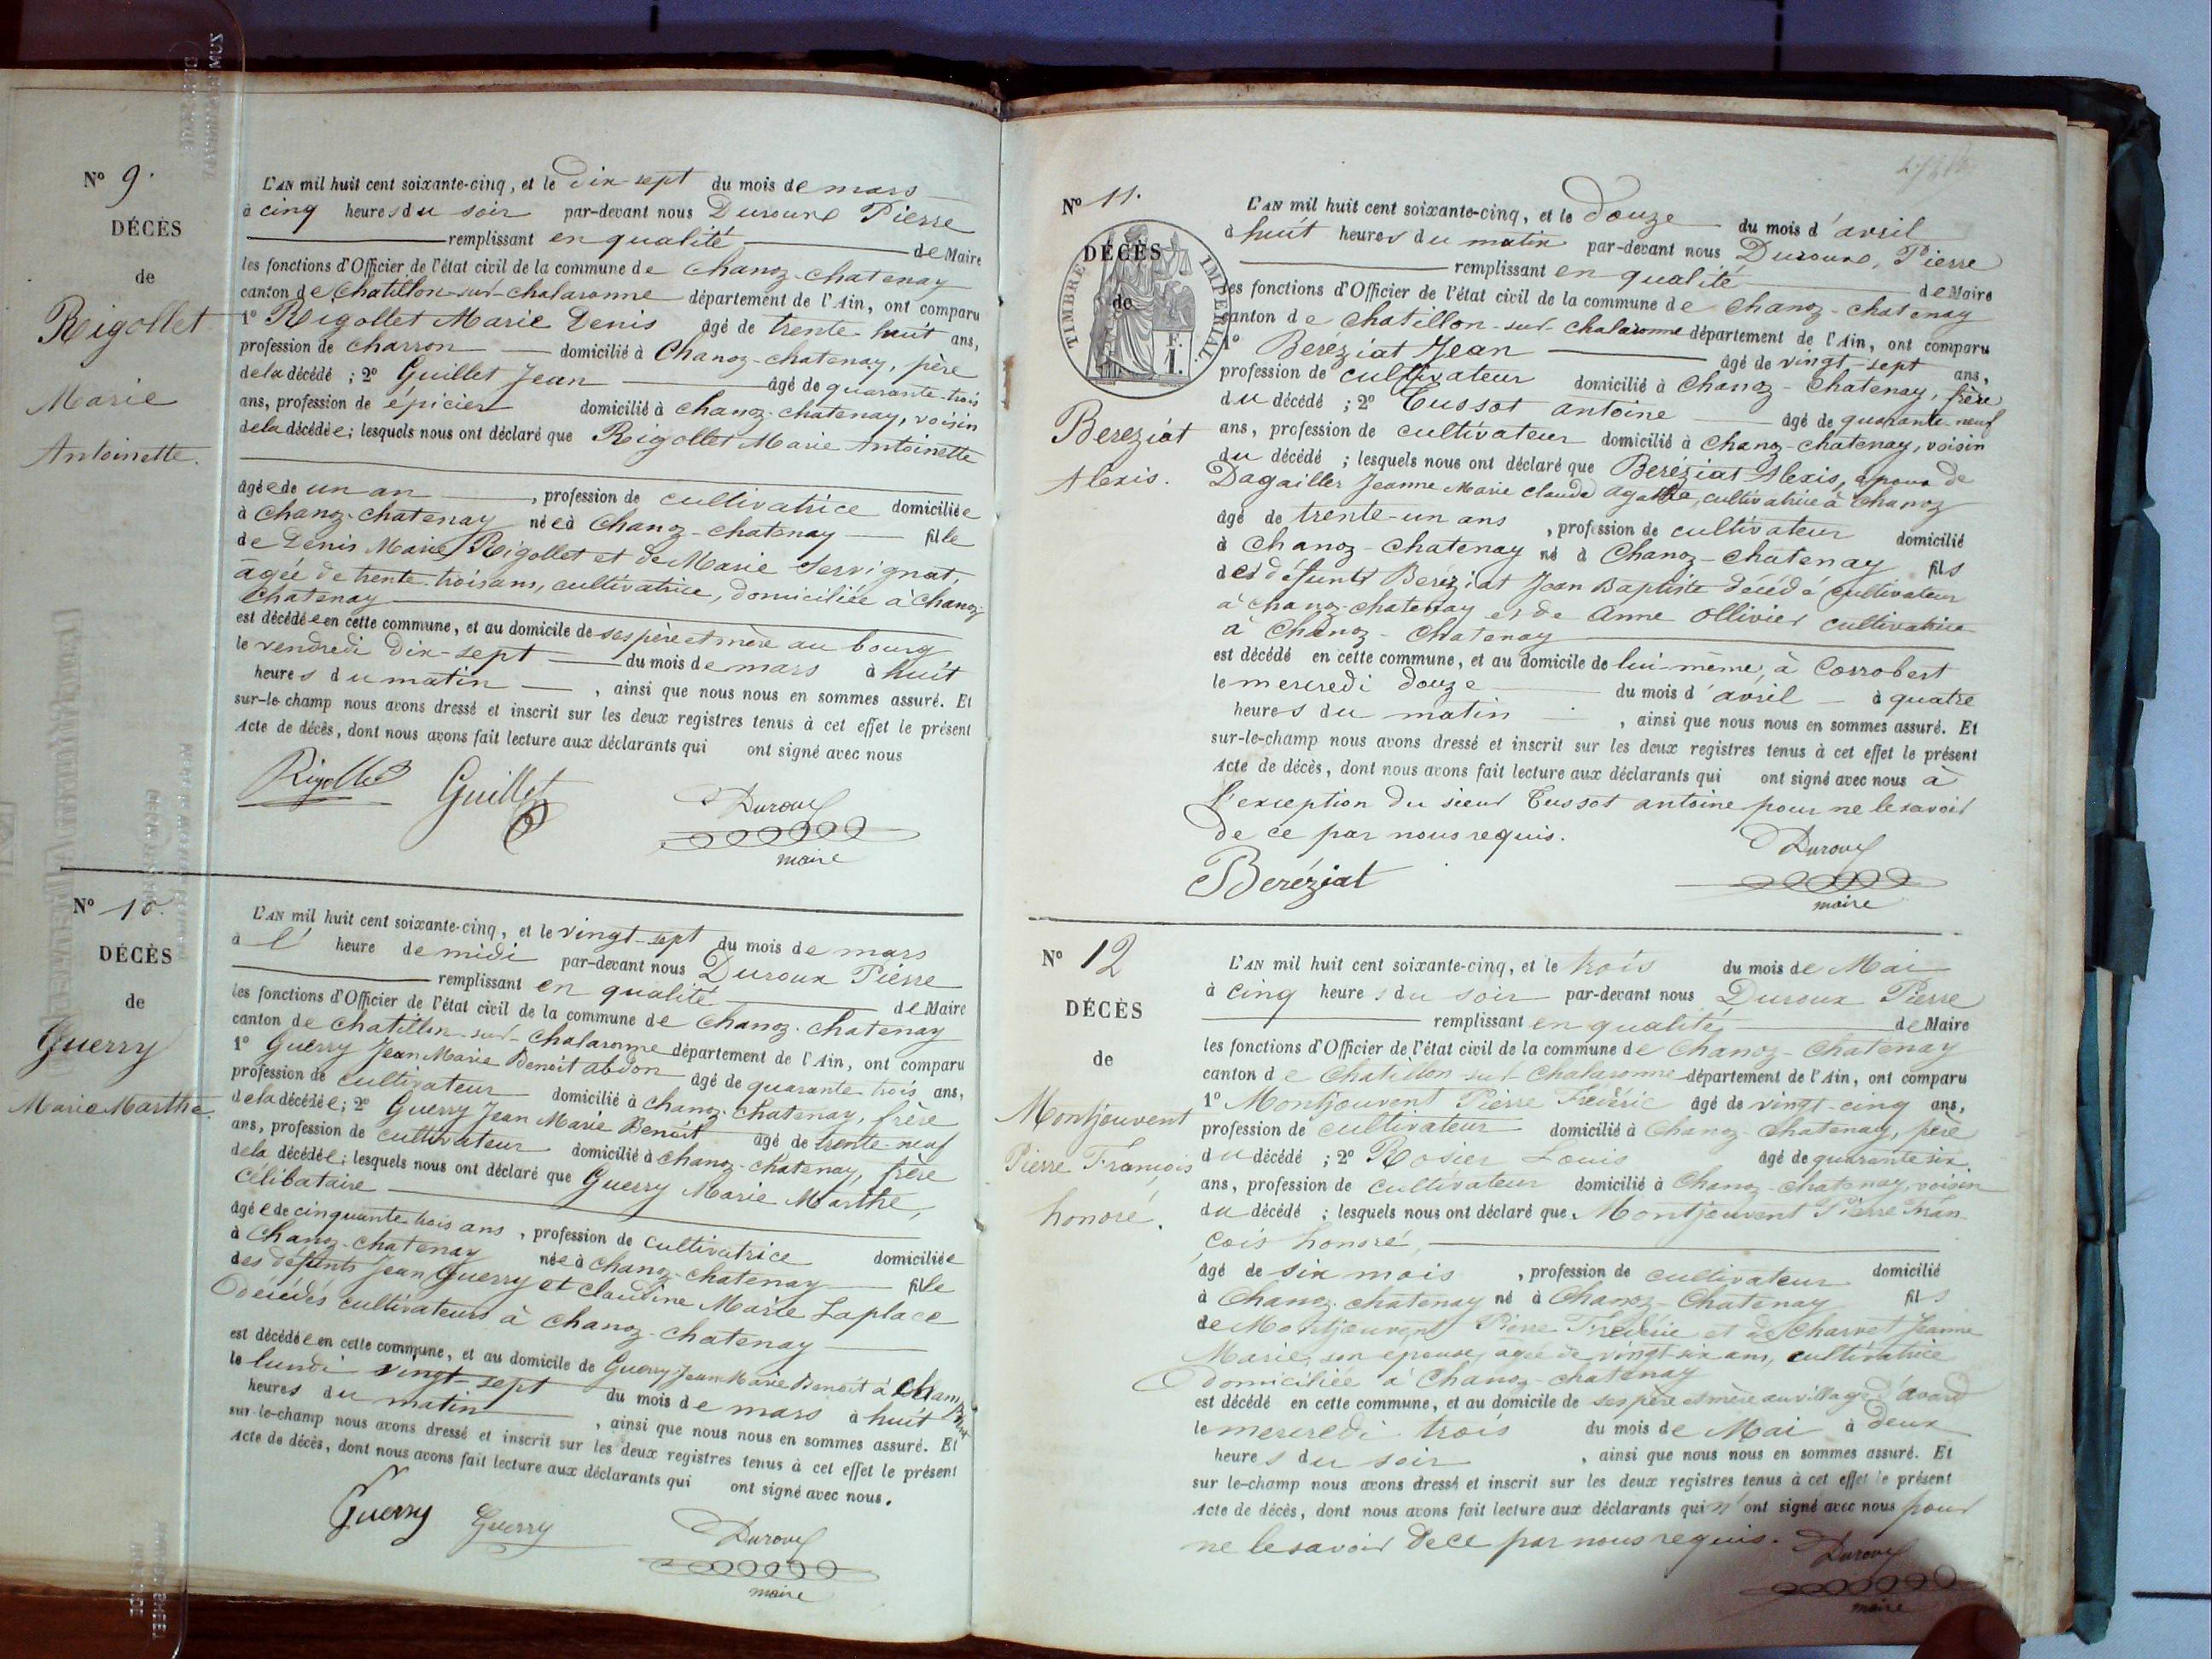 Nº 9.
DÉCÈS
de
Rigollet
Marie
Antoinette.
L'AN mil huit cent soixante-cinq, et le dix-sept du mois de mars
à cinq heures du soir par-devant nous Duroux Pierre
remplissant en qualité de Maire
les fonctions d'Officier de l'état civil de la commune de Chanoz-Chatenay
canton de Chatillon-sur-Chalaronne département de l'Ain, ont comparu
1º Rigollet Marie Denis âgé de trente-huit ans,
profession de charron domicilié à Chanoz-Chatenay, père
de la décédé ; 2º Guillet Jean âgé de quarante-trois
ans, profession de épicier domicilié à Chanoz-chatenay, voisin
de la décédée ; lesquels nous ont déclaré que Rigollet Marie Antoinette
âgée de un an , profession de cultivatrice domiciliée
à Chanoz-Chatenay née à Chanoz-Chatenay fille
de Denis Marie Rigollet et de Marie Servignat,
agée de trente-trois ans, cultivatrice, domiciliée à Chanoz-
Chatenay
est décédée en cette commune, et au domicile de ses père et mère au bourg
le vendredi dix-sept du mois de mars à huit
heures du matin , ainsi que nous nous en sommes assuré. Et
sur-le-champ nous avons dressé et inscrit sur les deux registres tenus à cet effet le présent
Acte de décès, dont nous avons fait lecture aux déclarants qui ont signé avec nous
Rigollet Guillet Duroux
maire
Nº 10.
DÉCÈS
de
Guerry
Marie Marthe.
L'AN mil huit cent soixante-cinq, et le vingt-sept du mois de mars
à l' heure de midi par-devant nous Duroux Pierre
remplissant en qualité de Maire
les fonctions d'Officier de l'état civil de la commune de Chanoz-Chatenay
canton de Chatillon-sur-Chalaronne département de l'Ain, ont comparu
1º Guerry Jean Marie Benoit abdon âgé de quarante trois ans,
profession de cultivateur domicilié à Chanoz-Chatenay, frère
de la décédée ; 2º Guerry Jean Marie Benoit âgé de trente-neuf
ans, profession de cultivateur domicilié à Chanoz-Chatenay, frère
de la décédée ; lesquels nous ont déclaré que Guerry Marie Marthe,
Célibataire
âgée de cinquante trois ans , profession de cultivatrice domiciliée
à Chanoz-Chatenay née à Chanoz-Chatenay fille
des défunts Jean Guerry et Claudine Marie Laplace
décédés cultivateurs à Chanoz-Chatenay
est décédée en cette commune, et au domicile de Guerry Jean Marie Benoit à
le lundi vingt-sept du mois de mars à huit
heures du matin , ainsi que nous nous en sommes assuré. Et
sur-le-champ nous avons dressé et inscrit sur les deux registres tenus à cet effet le présent
Acte de décès, dont nous avons fait lecture aux déclarants qui ont signé avec nous.
Guerry Guerry Duroux
maire
Nº 11.
DÉCÈS
de
TIMBRE IMPÉRIAL
F.
1.
Bereziat
Alexis.
L'AN mil huit cent soixante-cinq, et le douze du mois d'avril
à huit heures du matin par-devant nous Duroux, Pierre
remplissant en qualité de Maire
les fonctions d'Officier de l'état civil de la commune de Chanoz-Chatenay
canton de Chatillon-sur-Chalaronne département de l'Ain, ont comparu
1º Bereziat Jean âgé de vingt-sept ans,
profession de cultivateur domicilié à Chanoz-Chatenay, frère
du décédé ; 2º Cussot antoine âgé de quarante-neuf
ans, profession de cultivateur domicilié à Chanoz-Chatenay, voisin
du décédé ; lesquels nous ont déclaré que Beréziat Alexis, époux de
Dagailler Jeanne Marie Claude agathe, cultivatrice à Chanoz
âgé de trente-un ans , profession de cultivateur domicilié
à Chanoz-Chatenay né à Chanoz-Chatenay fils
des défunts Beréziat Jean Baptiste décédé cultivateur
à Chanoz-Chatenay et de Anne Ollivier cultivatrice
à Chanoz-Chatenay
est décédé en cette commune, et au domicile de lui-même, à Corrobert
le mercredi douze du mois d'avril à quatre
heures du matin , ainsi que nous nous en sommes assuré. Et
sur-le-champ nous avons dressé et inscrit sur les deux registres tenus à cet effet le présent
Acte de décès, dont nous avons fait lecture aux déclarants qui ont signé avec nous à
l'exception du sieur Cussot antoine pour ne le savoir
de ce par nous requis.
Beréziat Duroux
maire
Nº 12
DÉCÈS
de
Montjouvent
Pierre François
honoré.
L'AN mil huit cent soixante-cinq, et le trois du mois de Mai
à cinq heures du soir par-devant nous Duroux Pierre
remplissant en qualité de Maire
les fonctions d'Officier de l'état civil de la commune de Chanoz-Chatenay
canton de Chatillon sur Chalaronne département de l'Ain, ont comparu
1º Montjouvent Pierre Fréderic âgé de vingt-cinq ans,
profession de cultivateur domicilié à Chanoz-Chatenay, père
du décédé ; 2º Rosier Louis âgé de quarante six
ans, profession de cultivateur domicilié à Chanoz-Chatenay, voisin
du décédé ; lesquels nous ont déclaré que Montjouvent Pierre Fran
çois honoré,
âgé de six mois , profession de cultivateur domicilié
à Chanoz-Chatenay né à Chanoz-Chatenay fils
de Montjouvent Pierre Fréderic et de Charvet Jeanne
Marie, son epouse, agée de vingt-six ans, cultivatrice
domiciliée à Chanoz-chatenay
est décédé en cette commune, et au domicile de ses père et mère au village d'avard
le mercredi trois du mois de Mai à deux
heures du soir , ainsi que nous nous en sommes assuré. Et
sur le-champ nous avons dressé et inscrit sur les deux registres tenus à cet effet le présent
Acte de décès, dont nous avons fait lecture aux déclarants qui n'ont signé avec nous pour
ne le savoir de ce par nous requis.
Duroux
maire